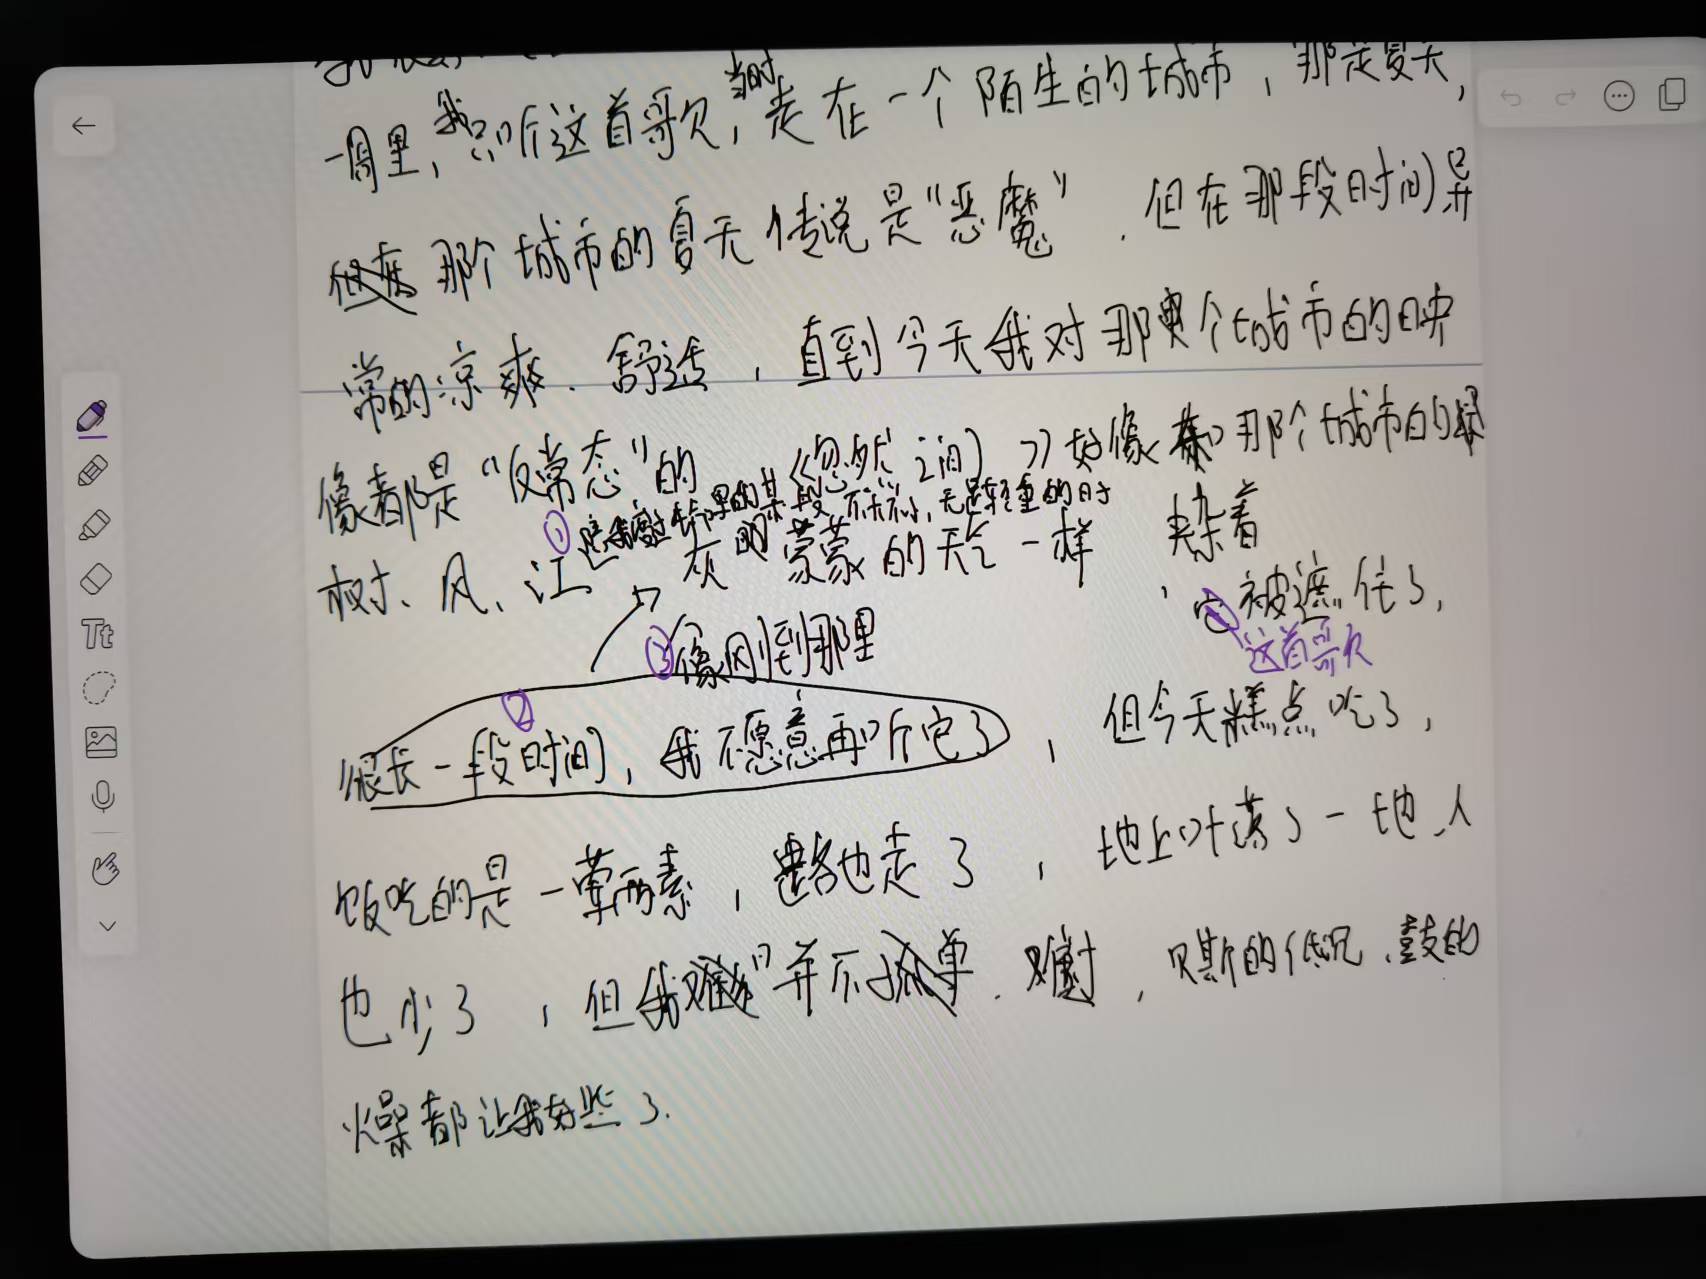 当时
一周里,我只听这首歌,走在一个陌生的城市,那是夏天,
但在那个城市的夏天传说是“恶魔”.但在那段时间异
常的凉爽、舒适,直到今天我对那个城市的映
像都是“反常态”的 《忽然之间》好像和那个城市的绿
① 生命里的某段不痛不痒,无足轻重的日子
树、风、江 灰 蒙蒙的天气一样 夹杂着
,它被遮住了,
③像刚到那里
这首歌
②
很长一段时间,我不愿意再听它了,但今天糕点吃了,
饭吃的是一荤两素,路也走了,地上叶落了一地,人
也少了,但我并不孤单.难过,贝斯的低沉、鼓的
燥都让我好些了.
Tt